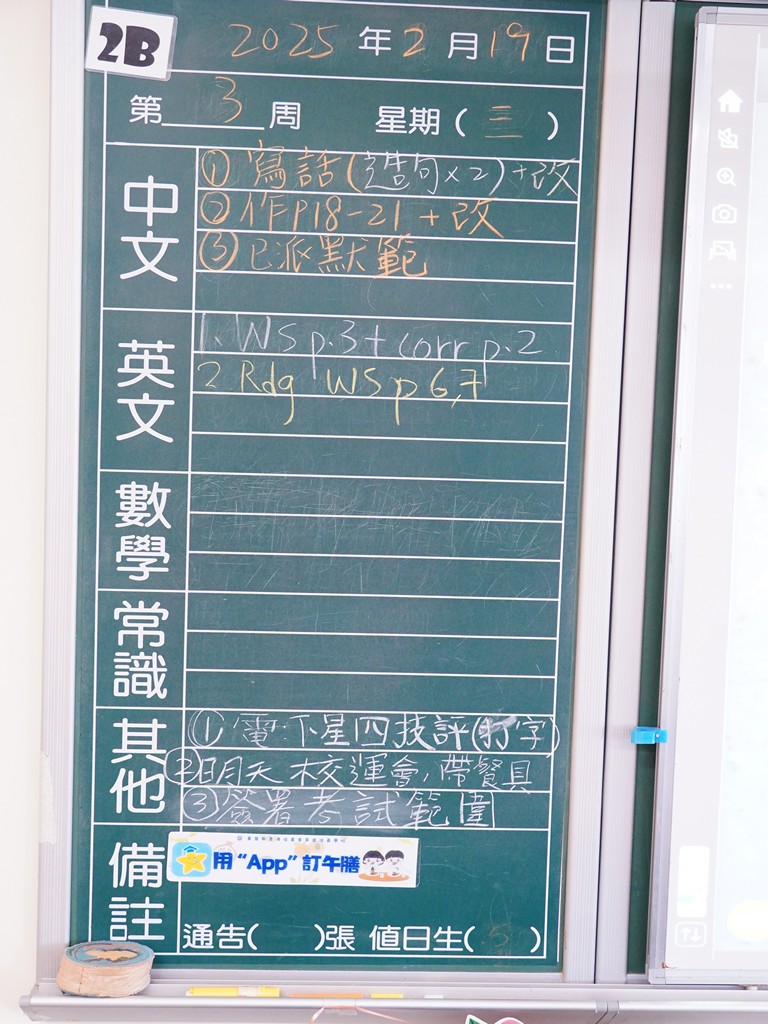 2B
2025年2月19日
第3周 星期(三)
中文
①寫話(造句×2)+改
②作P18-21+改
③已派默範
英文
1. WS p.3 + corr p.2
2 Rdg WS p 6,7
數學
常識
其他
①電:下星四技評(打字)
②明天校運會,帶餐具
③簽署考試範圍
備註
用“App”訂午膳
通告( )張 值日生(5)